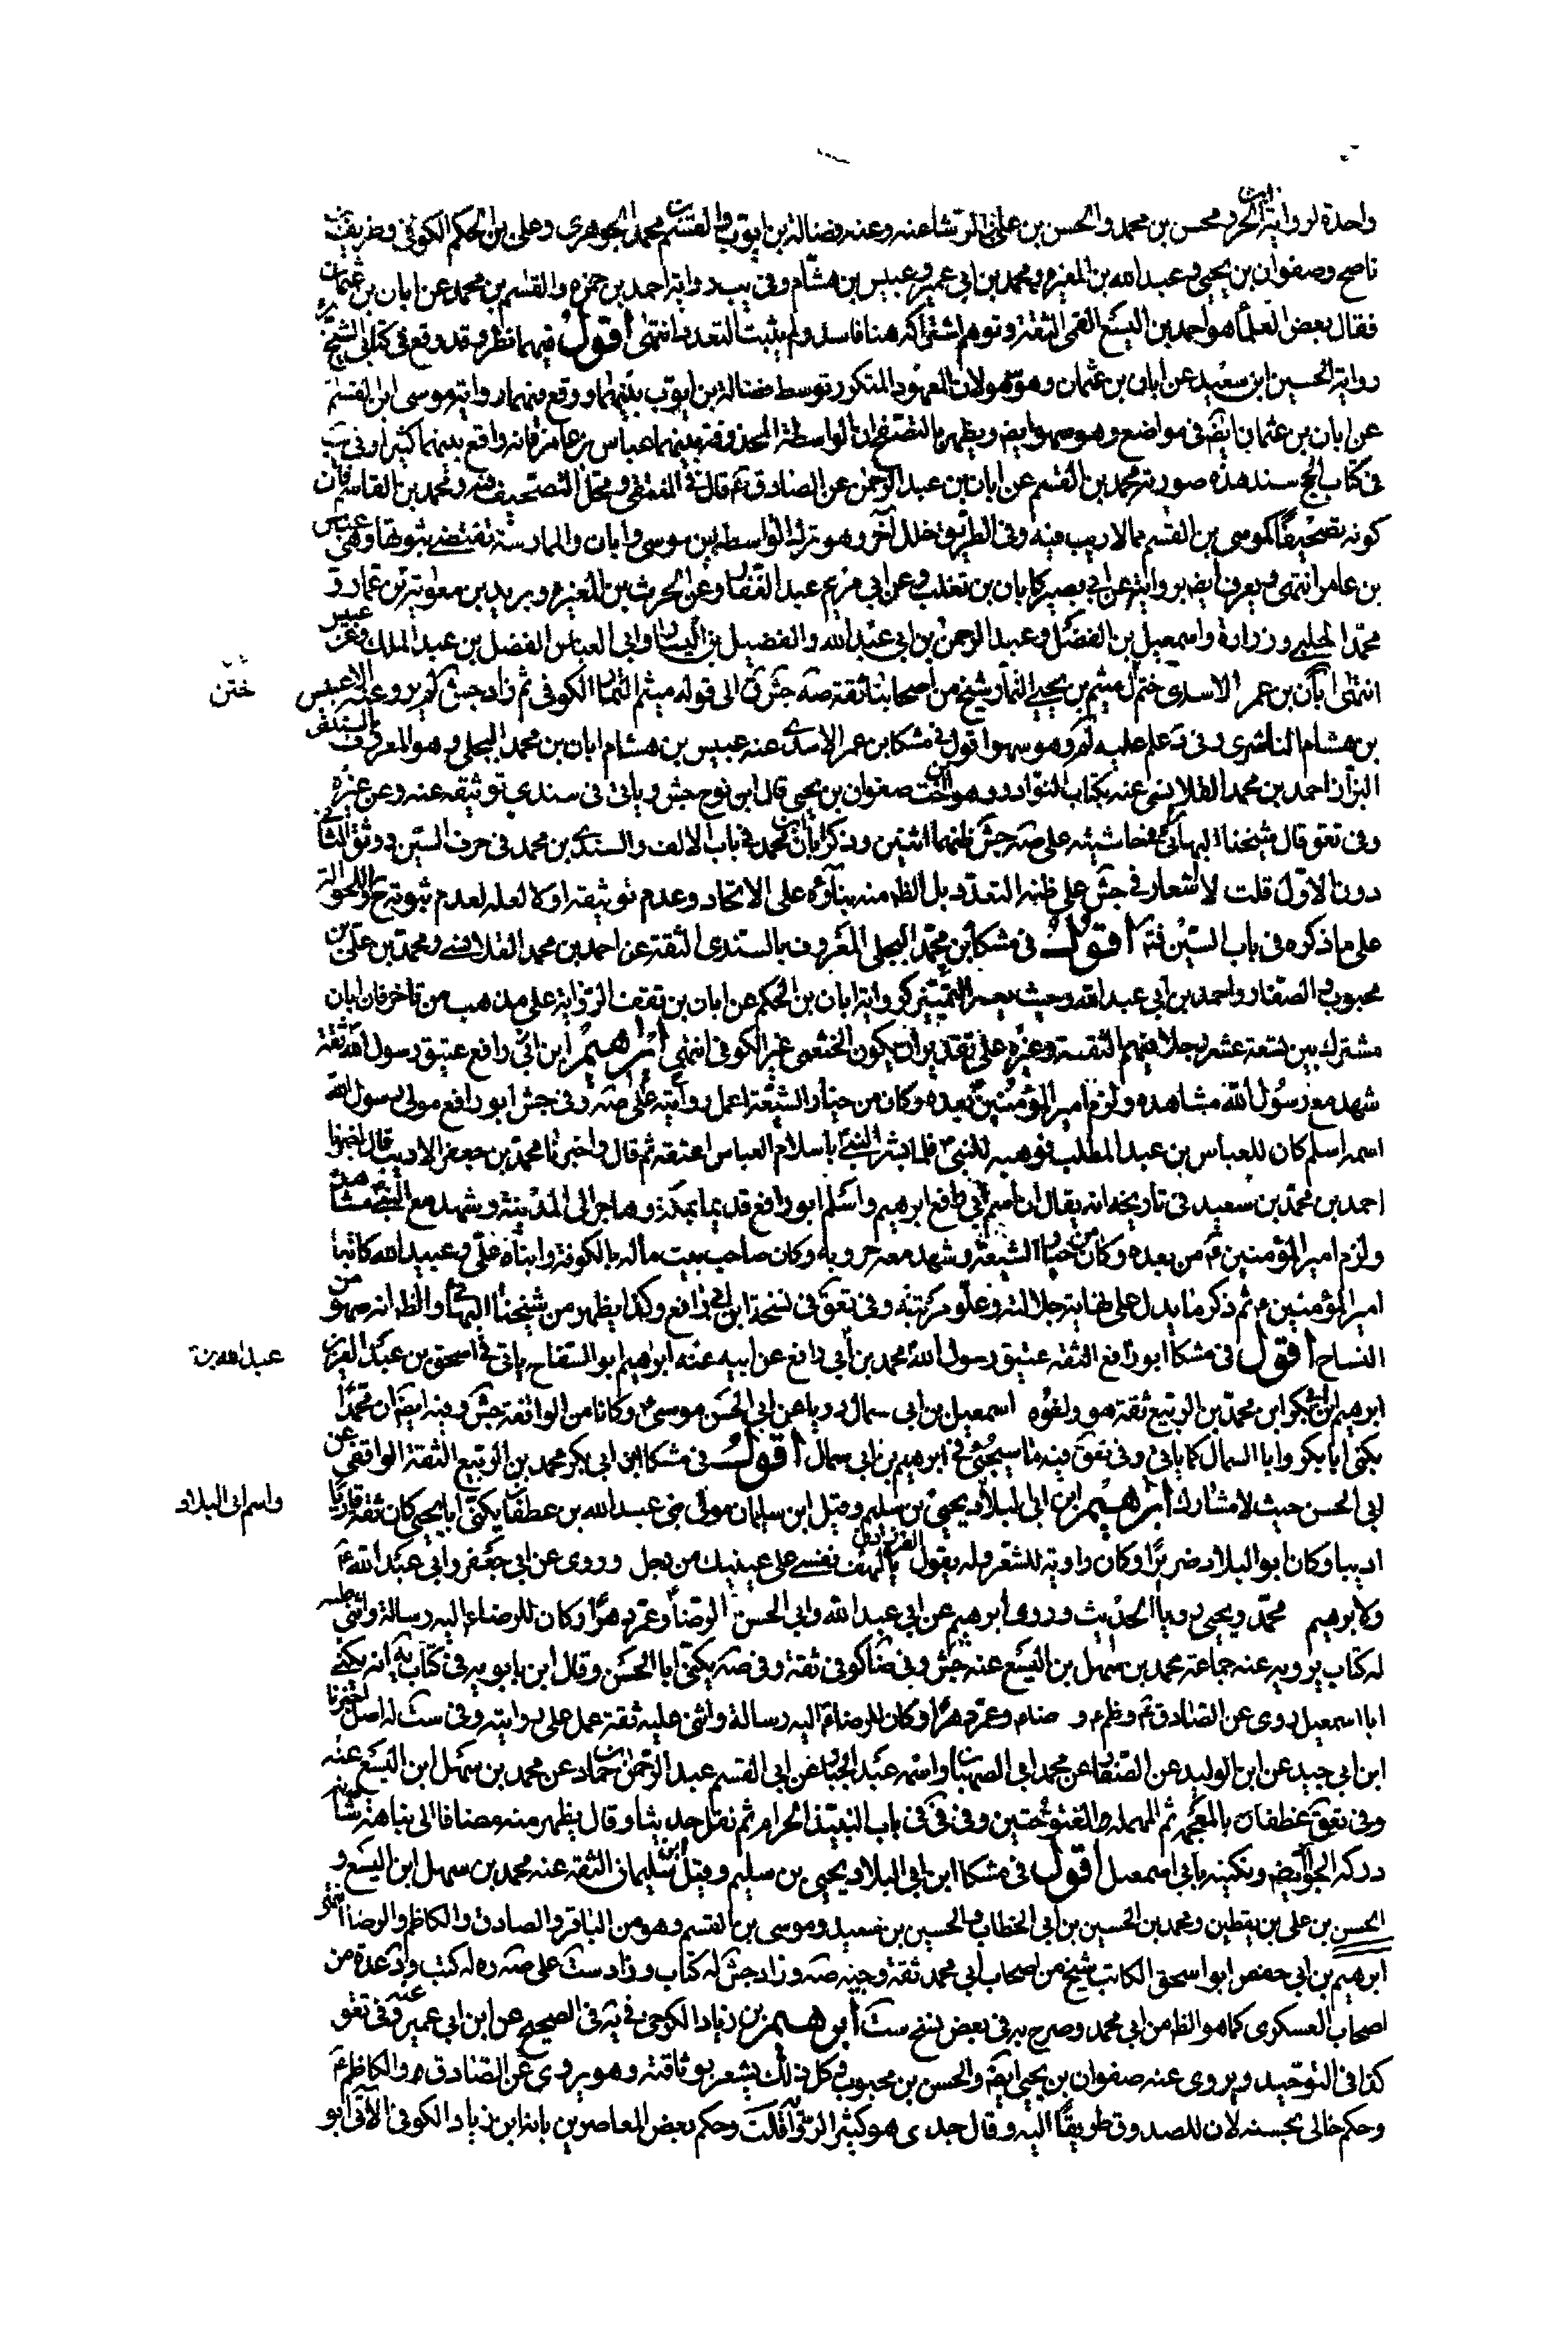 واحدة لرواية محسن بن محمد والحسن بن علي الوشا عنه وعنه فضالة بن ايوب والقسم محمد الجوهري وعلي بن الحكم الكوفي وظريف بن
ناصح وصفوان بن يحيى و عبد الله بن المغيره ومحمد بن ابي عمير وعبيس بن هشام وفي يب رواية احمد بن حمزه والقسم بن محمد عن ابان بن عثمان
فقال بعض العلما هو احمد بن اليسع القمي الثقة وتوهم اشتراكه هنا فاسد ولم يثبت التعدد انتهى اقول فيهما نظر وقد وقع في كتابي الشيخ
رواية الحسين ابن سعيد عن ابان بن عثمان وهو سهو لان المعهود المتكرر توسط فضالة بن ايوب بينهما ووقع فيهما رواية موسى ابن القسم
عن ابان بن عثمان ايض في مواضع وهو سهو ايض ويظهر بالتصفح ان الواسطة المحذوفة بينهما عباس بن عامر فانه واقع بينهما كثيرا وفي يب
في كتاب الحج سند هذه صورته محمد بن القسم عن ابان بن عبد الرحمن عن الصادق ع قال في المنتقى ومحل التصحيف فيه ومحمد بن القاسم فان
كونه تصحيفا لموسى بن القسم مما لا ريب فيه وفي الطريق خلل آخر وهو ترك الواسطه بين موسى وابان والممارسة تقتضي ثبوتها وهي عباس
بن عامر انتهى ويعرف ايض بروايته عن ابي بصير كابان بن تغلب وعن ابي مريم عبد الغفار وعن الحرث بن المغيره وبريد بن معوية بن عمار و
محمد الحلبي وزرارة واسمعيل بن الفضل وعبد الرحمن بن ابي عبد الله والفضيل بن اليسار وابي العباس الفضل بن عبد الملك وعن
انتهى ابان بن عمر الاسدي ختم ل ميثم بن يحيى التمار شيخ من اصحابنا ثقة صه جش ق الى قوله ميثم التمار الكوفي ثم زاد جش لم يرو عنه الا عبيس
ختن
بن هشام الناشري وفي د علم عليه لم وهو سهو اقول في مشكا بن عمر الاسدي عنه عبيس بن هشام ابان بن محمد البجلي وهو المعروف بالسندي
البزاز احمد بن محمد القلانسي عنه بكتاب النوادر وهو ابن اخت صفوان بن يحيى قال ابن نوح جش وياتي في سندي توثيقه عنه وعن غيره
وفي تعق قال شيخنا البهائي في حاشيته على صه جش ظنهما اثنين وذكر ابان محمد في باب الالف والسندي بن محمد في حرف السين ووثق الثاني
دون الاول قلت لا اشعار في جش على ظنه التعدد بل الظ منه بناؤه على الاتحاد وعدم توثيقه اولا لعله لعدم ثبوته ح او للحوالة
على ما ذكره في باب السين فتم اقول في مشكا بن محمد البجلي المعروف بالسندي الثقة عن احمد بن محمد القلانسي ومحمد بن علي بن
محبوب والصفار واحمد بن ابي عبد الله وحيث يعسر التميز كرواية ابان بن الحكم عن ابان بن تقف الرواية على مذهب من تاخر فان ابان
مشترك بين تسعة عشر رجلا فيهم الثقة وغيره على تقدير ان يكون الخثعمي غير الكوفي انتهى ابرهيم ابن ابي رافع عتيق رسول الله ثقة
شهد مع رسول الله مشاهده ولزم امير المؤمنين بعده وكان من خيار الشيعة اعمل روايته على صه وفي جش ابو رافع مولى رسول الله
اسمه اسلم كان للعباس بن عبد المطلب فوهبه للنبي ص فلما بشر النبي باسلام العباس اعتقه ثم قال واخبرنا محمد بن جعفر الاديب قال اخبرنا
احمد بن محمد بن سعيد في تاريخه انه يقال ان اسم ابي رافع ابرهيم واسلم ابو رافع قديما بمكة وهاجر الى المدينة وشهد مع النبي مشاهده
ولزم امير المؤمنين ع من بعده وكان من خيار الشيعة وشهد معه حروبه وكان صاحب بيت ماله بالكوفة وابناه علي وعبيد الله كاتبا
امير المؤمنين ع ثم ذكر ما يدل على نهاية جلالته وعلو مرتبته وفي تعق في نسخة ابن ابي رافع وكذا يظهر من شيخنا البهائي والظ انه سهو من
النساخ اقول في مشكا ابو رافع الثقة عتيق رسول الله محمد بن ابي رافع عن ابيه عنه ابرهيم ابو السفاح ياتي في اسحق بن عبد العزيز
عبد الله بنة
ابرهيم ابن ابي بكر ابن محمد بن الربيع ثقة هو واخوه اسمعيل بن ابي سمال رويا عن ابي الحسن موسى ع وكانا من الواقفة جش وفيه ايضا ان محمدا
يكنى ابا بكر وابا السمال كما ياتي وفي تعق فيه ما سيجئ في ابرهيم بن ابي سمال اقول في مشكا ابن ابي بكر محمد بن الربيع الثقة الواقفي عن
ابي الحسن حيث لا مشارك ابرهيم ابن ابي البلاد يحيى بن سليم وقيل ابن سليمان مولى بني عبد الله بن عطفان يكنى ابا يحيى كان ثقة قاريا
واسم ابي البلاد
اديبا وكان ابو البلاد ضريرا وكان راوية للشعر وله يقول الفرزدق يا لهف نفسي على عينيك من رجل وروى عن ابي جعفر وابي عبد الله ع
ولابرهيم محمد ويحيى رويا الحديث وروى ابرهيم عن ابي عبد الله وابي الحسن الرضا وعمر دهرا وكان للرضا ع اليه رسالة واثنى عليه
له كتاب يرويه عنه جماعة محمد بن سهل بن اليسع عنه جش وفي ضا كوفي ثقة وفي صه يكنى ابا الحسن وقال ابن بابويه في كتابه انه يكنى
ابا اسمعيل روى عن الصادق ع وظم ع و ضا ع وعمر دهرا وكان للرضا ع اليه رسالة واثنى عليه ثقة عمل على روايته وفي ست له اصل اخبرنا
ابن ابي جيد عن ابن الوليد عن الصفار عن محمد ابي الصهبان واسمه عبد الجبار عن ابي القسم عبد الرحمن بن حماد عن محمد بن سهل ابن اليسع عنه
وفي تعق غطفان بالمعجمة ثم المهملة والفتوحتين وفي في في باب النبيذ الحرام ثم نقل حديثا وقال يظهر منه مضافا الى نباهة شانه
دركه الجواد ايض وتكنيه بابي اسمعيل اقول في مشكا ابن ابي البلاد يحيى بن سليم وقيل ابن سليمان الثقة عنه محمد بن سهل ابن اليسع و
الحسن بن علي بن يقطين ومحمد بن الحسين بن ابي الخطاب والحسين بن سعيد وموسى بن القسم وهو من الباقر والصادق والكاظم والرضا انتهى
ابرهيم بن ابي حفص ابو اسحق الكاتب شيخ من اصحاب ابي محمد ثقة وجيه صه وزاد جش له كتاب وزاد ست على صه ره له كتب وزاد عدة من
اصحاب العسكري كما هو الظ من ابي محمد وصرح به في بعض نسخ ست ابرهيم بن زياد الكرخي في يه في الصحيح عن ابن ابي عمير عنه وفي تعق
كذا في التوحيد ويروى عنه صفوان بن يحيى ايض والحسن بن محبوب وكل ذلك يشعر بوثاقته وهو يروي عن الصادق ع والكاظم ع
وحكم خالي بحسنه لان للصدوق طريقا اليه وقال جدي هو كثير الرواية قلت وحكم بعض المعاصرين بانه ابن زياد الكوفي الآتي ابو